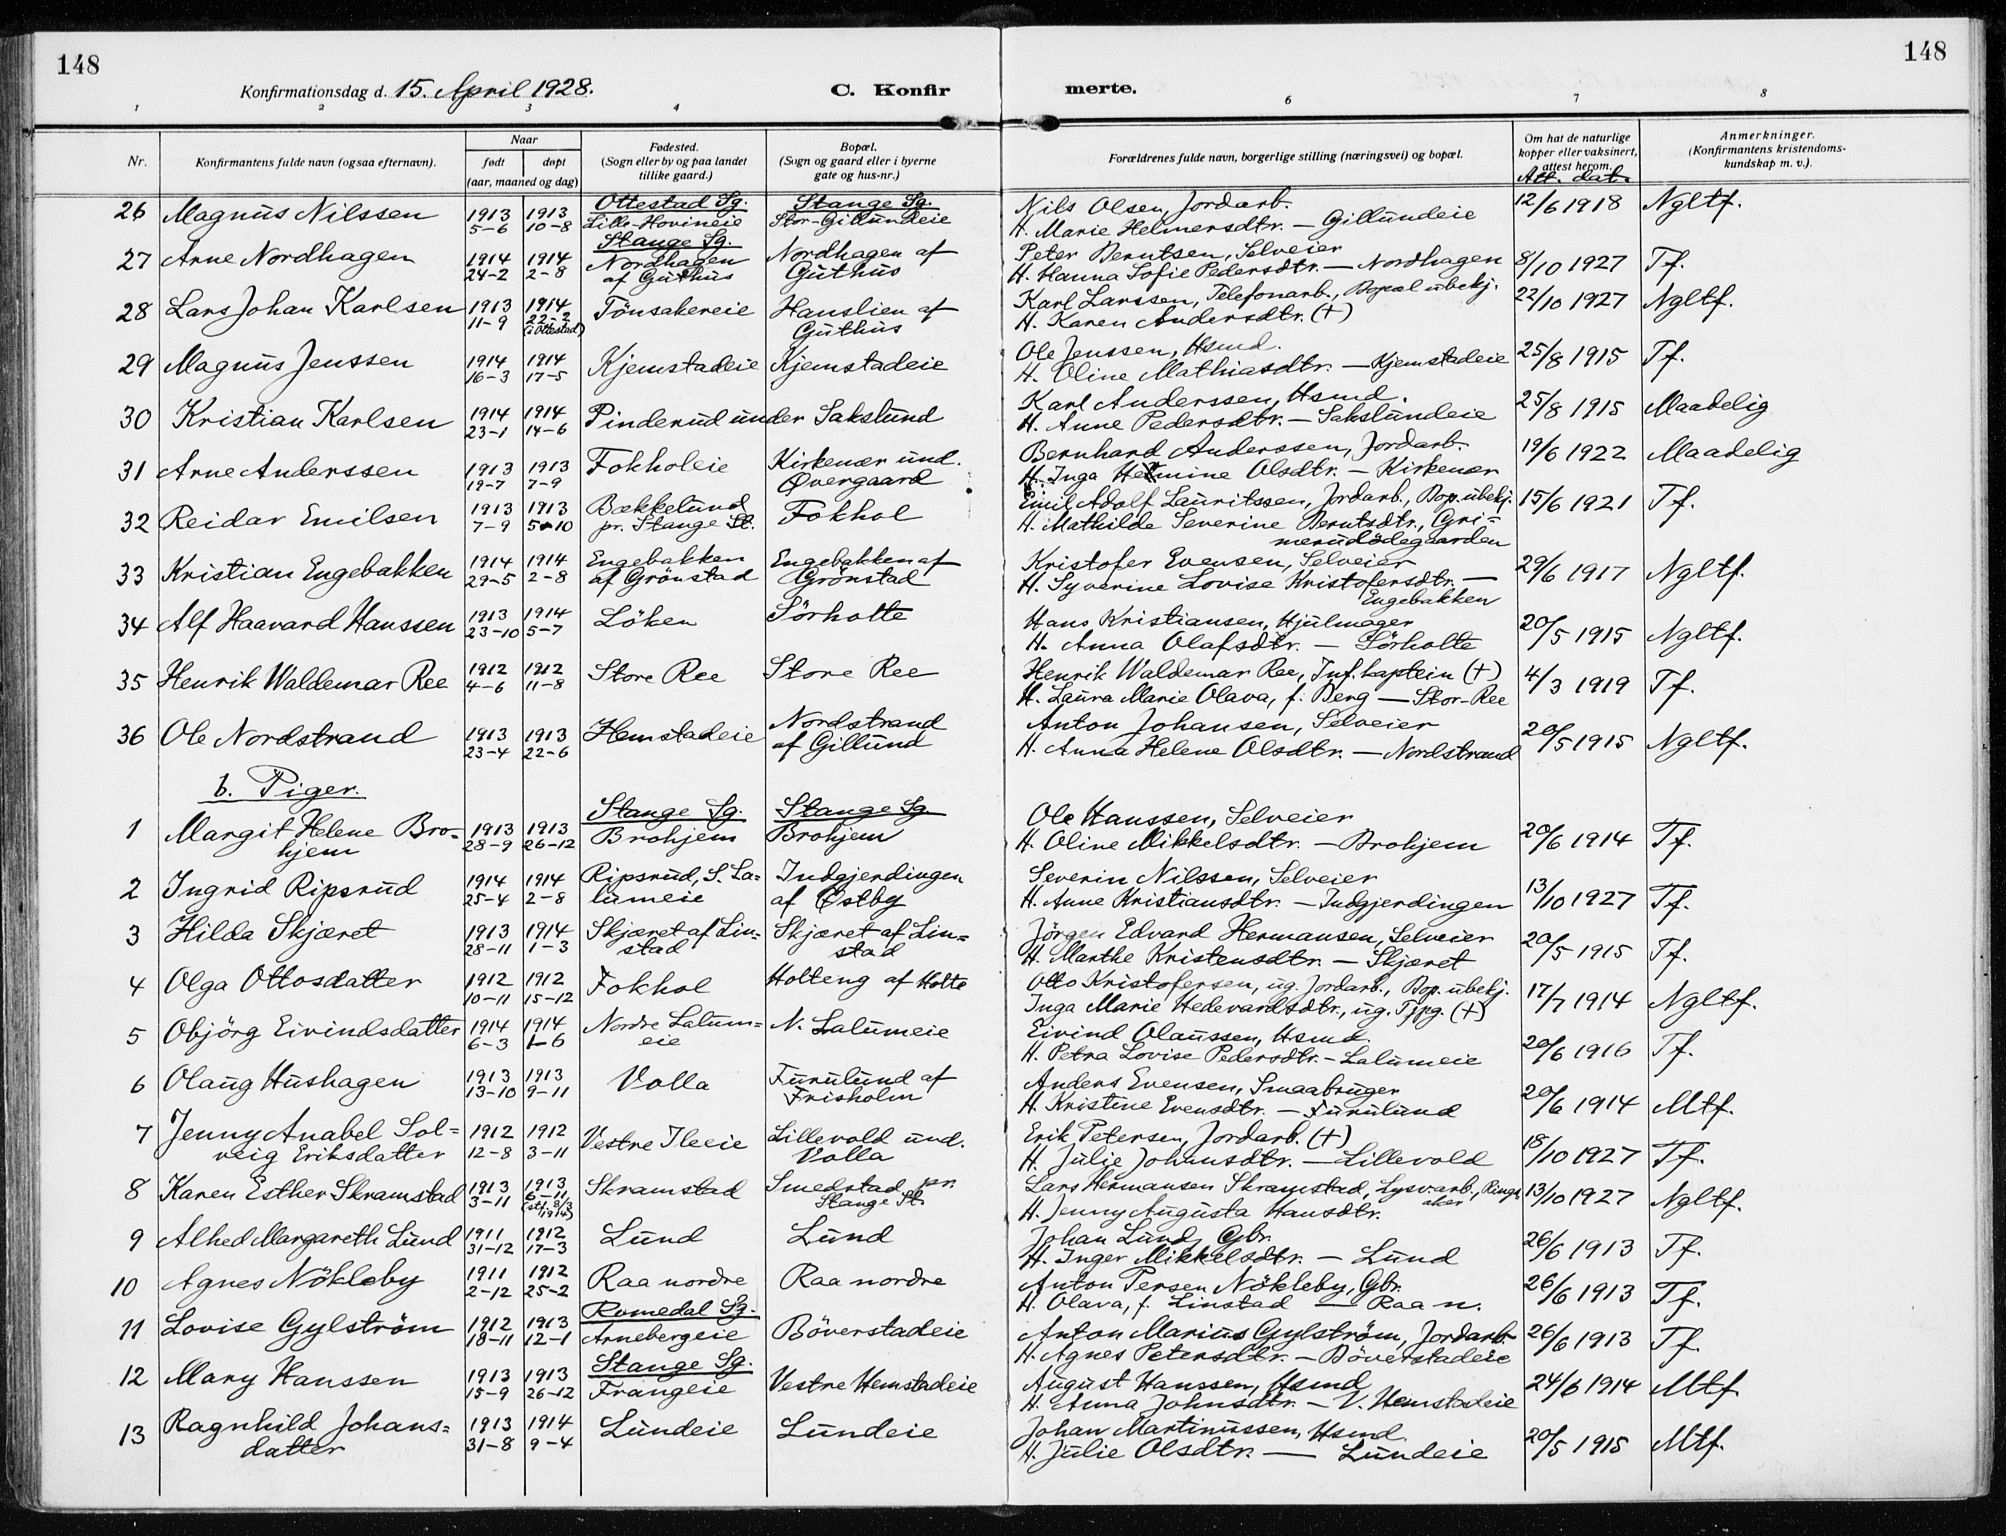 148
148
Konfirmationsdag d. 15. April 1928.
C. Konfir
merte.
1 2 3 4 6 7 8
Nr.
Konfirmantens fulde navn (ogsaa efternavn).
Naar
født døpt
(aar, maaned og dag)
Fødested.
(Sogn eller by og paa landet
tillike gaard.)
Bopæl.
(Sogn og gaard eller i byerne
gate og hus-nr.)
Forældrenes fulde navn, borgerlige stilling (næringsvei) og bopæl.
Om hat de naturlige
kopper eller vaksinert,
attest herom.
Att. dat.
Anmerkninger.
(Konfirmantens kristendoms-
kundskap m. v.).
Ottestad Sg. Stange Sg.
26 Magnus Nilssen 1913 1913 Lille-Hovineie Stor-Gillundeie Nils Olsen, Jordarb. 12/6 1918 Ngltf.
5-6 10-8 H. Marie Helmersdtr. — Gillundeie
Stange Sg.
27 Arne Nordhagen 1914 1914 Nordhagen Nordhagen af Peter Berntsen, Selveier 8/10 1927 Tf.
24-2 2-8 af Guthus Guthus H. Hanna Sofie Pedersdtr. — Nordhagen
28 Lars Johan Karlsen 1913 1914 Tönsakereie Hanslien af Karl Larssen, Telefonarb., Bopæl ubekj. 22/10 1927 Ngltf.
11-9 22-2 Guthus H. Karen Andersdtr. (+)
(i Ottestad)
29 Magnus Jenssen 1914 1914 Kjemstadeie Kjemstadeie Ole Jenssen, Hsmd. 25/8 1915 Tf.
16-3 17-5 H. Oline Mathiasdtr. — Kjemstadeie
30 Kristian Karlsen 1914 1914 Pinderud under Sakslund Karl Anderssen, Hsmd. 25/8 1915 Maadelig
23-1 14-6 H. Anne Pedersdtr. — Sakslundeie
31 Arne Anderssen 1913 1913 Fokholeie Kirkenær und. Bernhard Anderssen, Jordarb. 19/6 1922 Maadelig
19-7 7-9 Övergaard H. Inga Hermine Olsdtr. — Kirkenær
32 Reidar Emilsen 1913 1913 Bækkelund Fokhol Emil Adolf Lauritssen, Jordarb., Bop. ubekj. 15/6 1921 Tf.
7-9 5-10 pr. Stange St. H. Mathilde Severine Berntsdtr., Gri-
merudödegaarden
33 Kristian Engebakken 1914 1914 Engebakken Engebakken af Kristofer Evensen, Selveier 29/6 1917 Ngltf.
29-5 2-8 af Grönstad Grönstad H. Syverine Lovise Kristofersdtr. —
Engebakken
34 Alf Haavard Hanssen 1913 1914 Löken Sörholte Hans Kristiansen, Hjulmager 20/5 1915 Ngltf.
23-10 5-7 H. Anna Olafsdtr. — Sörholte
35 Henrik Waldemar Ree 1912 1912 Store Ree Store Ree Henrik Waldemar Ree, Inf. kaptein (+) 4/3 1919 Tf.
4-6 11-8 H. Laura Marie Olava, f. Berg — Stor-Ree
36 Ole Nordstrand 1913 1913 Hemstadeie Nordstrand Anton Johansen, Selveier 20/5 1915 Ngltf.
23-4 22-6 af Gillund H. Anna Helene Olsdtr. — Nordstrand
b. Piger.
Stange Sg. Stange Sg.
1 Margit Helene Bro- 1913 1913 Brohjem Brohjem Ole Hanssen, Selveier 20/6 1914 Tf.
hjem 28-9 26-12 H. Oline Mikkelsdtr. — Brohjem
2 Ingrid Ripsrud 1914 1914 Ripsrud, S. La- Indgjerdingen Severin Nilssen, Selveier 13/10 1927 Tf.
25-4 2-8 lumeie af Östby H. Anne Kristiansdtr. — Indgjerdingen
3 Hilda Skjæret 1913 1914 Skjæret af Lin- Skjæret af Lin- Jörgen Edvard Hermansen, Selveier 20/5 1915 Tf.
28-11 1-3 stad stad H. Marthe Kristensdtr. — Skjæret
4 Olga Ottosdatter 1912 1912 Fokhol Holteng af Holte Otto Kristofersen, ug. Jordarb., Bop. ubekj. 17/7 1914 Ngltf.
10-11 15-12 Inga Marie Hedevardsdtr., ug. Tjpg. (+)
5 Objörg Eivindsdatter 1914 1914 Nordre Lalum- N. Lalumeie Eivind Olaussen, Hsmd. 20/6 1916 Tf.
6-3 1-6 eie H. Petra Lovise Pedersdtr. — Lalumeie
6 Olaug Hushagen 1913 1913 Volla Furulund af Anders Evensen, Smaabruger 20/6 1914 Mtf.
13-10 9-11 Frisholm H. Kristine Evensdtr. — Furulund
7 Jenny Anabel Sol- 1912 1912 Vestre Ileeie Lillevold und. Erik Petersen, Jordarb. (+) 18/10 1927 Tf.
veig Eriksdatter 12-8 3-11 Volla H. Julie Johansdtr. — Lillevold
8 Karen Esther Skramstad 1913 1913 Skramstad Smedstad pr. Lars Hermansen Skramstad, Lysv.arb., Rings- 13/10 1927 Ngltf.
3-11 6-11 Stange St. aker
(stf. 8/3 1914) H. Jenny Augusta Hansdtr.
9 Alhed Margareth Lund 1911 1912 Lund Lund Johan Lund, Gbr. 26/6 1913 Tf.
31-12 17-3 H. Inger Mikkelsdtr. — Lund
10 Agnes Nökleby 1911 1912 Raa nordre Raa nordre Anton Persen Nökleby, Gbr. 26/6 1913 Tf.
2-12 25-2 H. Olava, f. Linstad — Raa n.
Romedal Sg.
11 Lovise Gylström 1912 1913 Arnebergeie Böverstadeie Anton Marius Gylström, Jordarb. 26/6 1913 Tf.
18-11 12-1 H. Agnes Petersdtr. — Böverstadeie
Stange Sg.
12 Mary Hanssen 1913 1913 Frangeie Vestre Hemstadeie August Hanssen, Hsmd 24/6 1914 Mtf
15-9 26-12 H. Anna Johnsdtr. — V. Hemstadeie
13 Ragnhild Johans- 1913 1914 Lundeie Lundeie Johan Martinussen, Hsmd. 20/5 1915 Mtf.
datter 31-8 9-4 H. Julie Olsdtr. — Lundeie